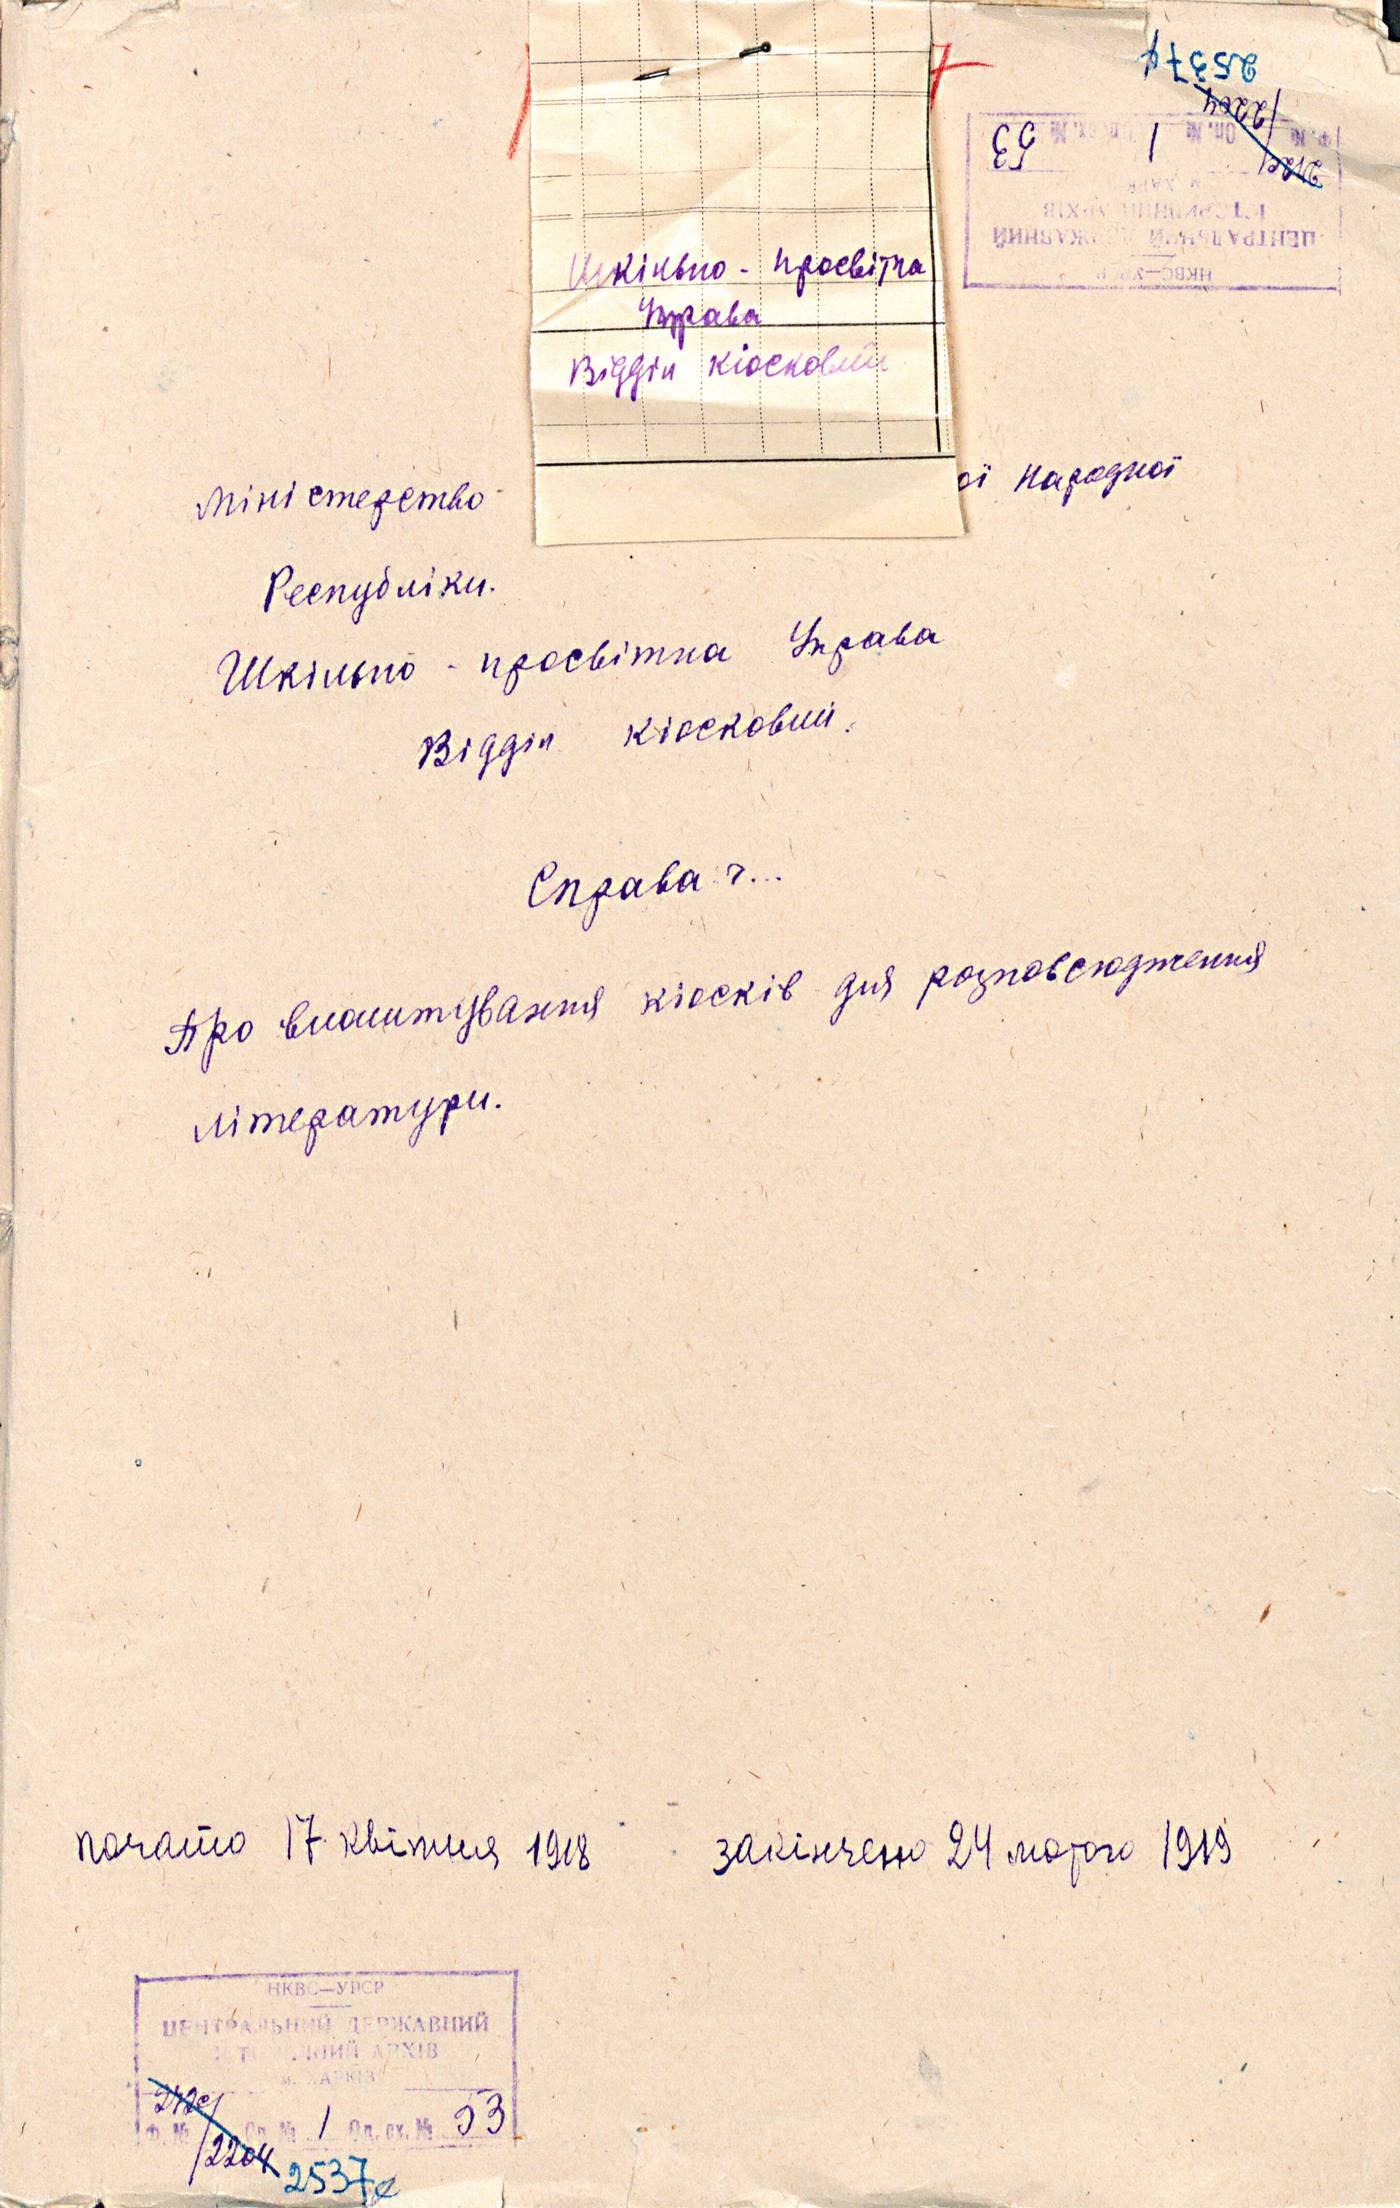 2537ф
2204
НКВС—УРСР
ЦЕНТРАЛЬНИЙ ДЕРЖАВНИЙ
ІСТОРИЧНИЙ АРХІВ
м. ХАРКІВ
Ф. № Оп. № 1 Од. сх. № 53
Шкільно - просвітна
Управа
Відділ кіосковий
Міністерство ої Народної
Республіки.
Шкільно - просвітна Управа
Відділ кіосковий.
Справа ч...
Про влаштування кіосків для розповсюдження
літератури.
почато 17 квітня 1918 закінчено 24 лютого 1919
НКВС—УРСР
ЦЕНТРАЛЬНИЙ ДЕРЖАВНИЙ
ІСТОРИЧНИЙ АРХІВ
м. ХАРКІВ
Ф. № Оп. № 1 Од. сх. № 53
2204
2537ф